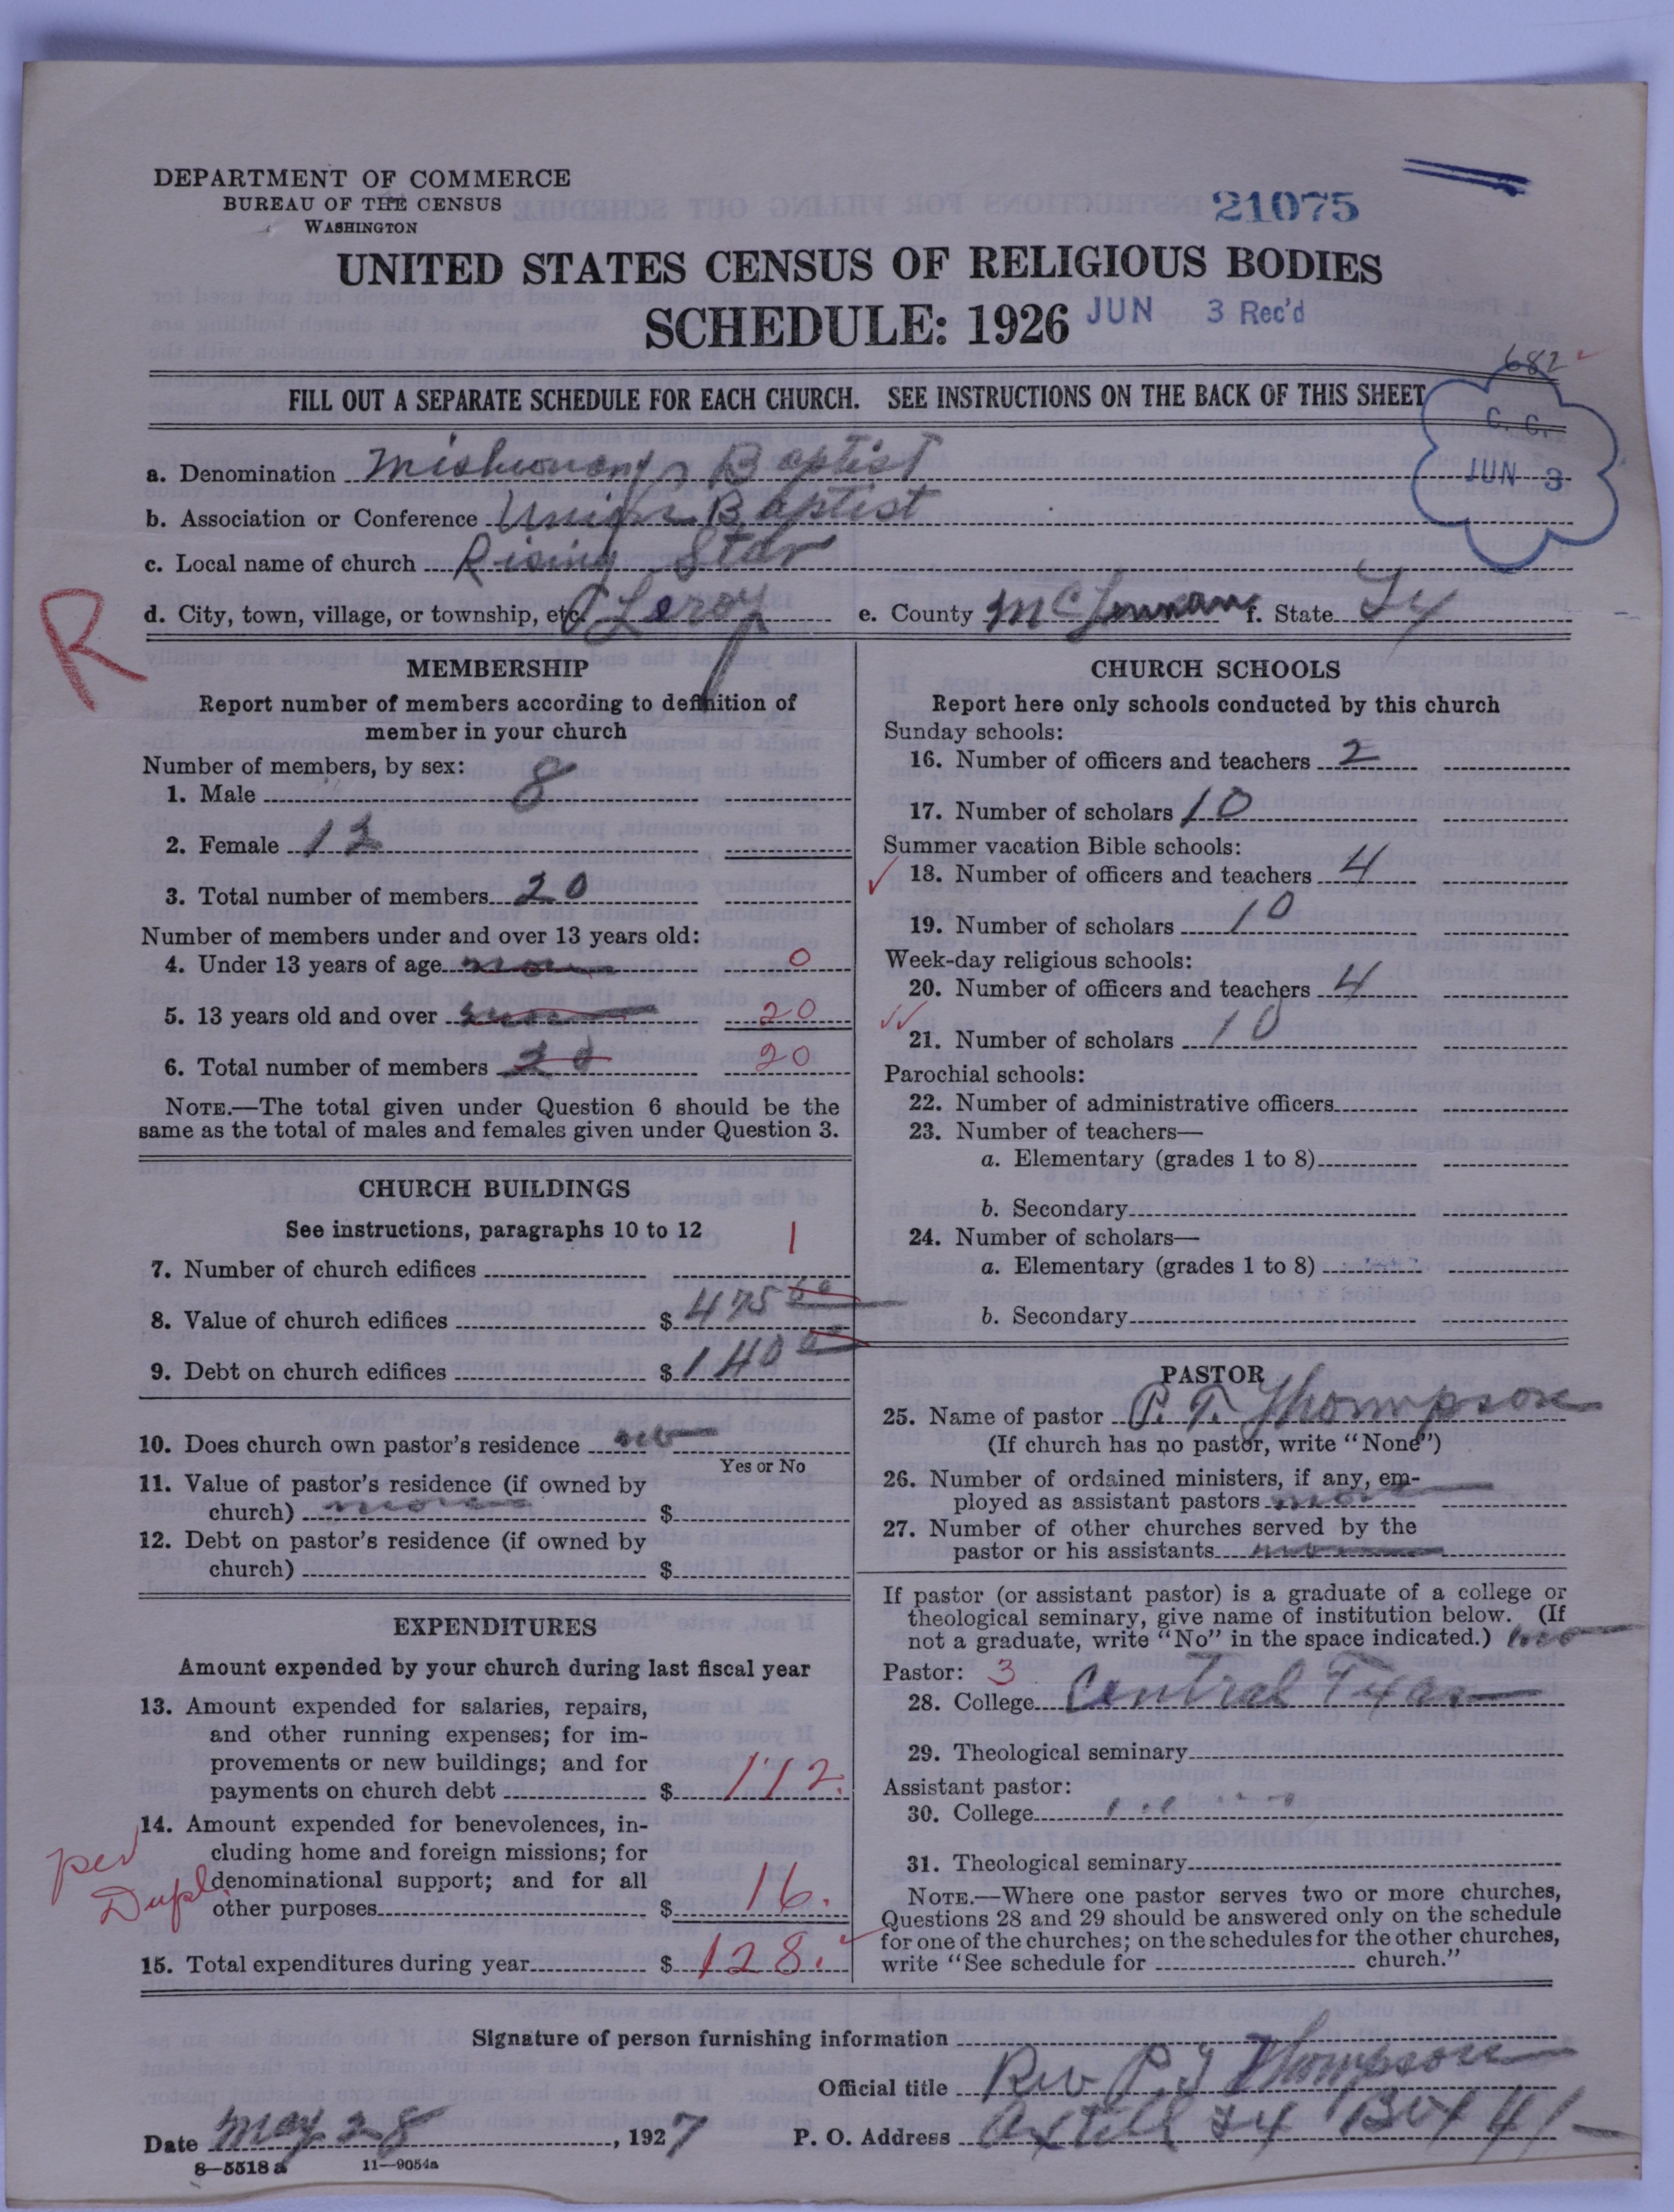 DEPARTMENT OF COMMERCE
BUREAU OF THE CENSUS
WASHINGTON
21075
UNITED STATES CENSUS OF RELIGIOUS BODIES
SCHEDULE: 1926 JUN 3 Rec'd
682
FILL OUT A SEPARATE SCHEDULE FOR EACH CHURCH. SEE INSTRUCTIONS ON THE BACK OF THIS SHEET
C. C.
JUN 3
a. Denomination Baptist
b. Association or Conference Union Baptist
c. Local name of church Rising Star
R
d. City, town, village, or township, etc. Leroy e. County McLennan f. State Tx
MEMBERSHIP
Report number of members according to definition of
member in your church
Number of members, by sex:
1. Male 8
2. Female 12
3. Total number of members 20
Number of members under and over 13 years old:
4. Under 13 years of age 0
5. 13 years old and over 20
6. Total number of members 20 20
NOTE.—The total given under Question 6 should be the
same as the total of males and females given under Question 3.
CHURCH BUILDINGS
See instructions, paragraphs 10 to 12
7. Number of church edifices 1
8. Value of church edifices $ 475 00
9. Debt on church edifices $ 140 00
10. Does church own pastor's residence no
Yes or No
11. Value of pastor's residence (if owned by
church) none $
12. Debt on pastor's residence (if owned by
church) $
EXPENDITURES
Amount expended by your church during last fiscal year
13. Amount expended for salaries, repairs,
and other running expenses; for im-
provements or new buildings; and for
payments on church debt $ 112.
14. Amount expended for benevolences, in-
cluding home and foreign missions; for
denominational support; and for all
other purposes $ 16.
per
Dupl.
15. Total expenditures during year $ 128.
CHURCH SCHOOLS
Report here only schools conducted by this church
Sunday schools:
16. Number of officers and teachers 2
17. Number of scholars 10
Summer vacation Bible schools:
18. Number of officers and teachers 4
19. Number of scholars 10
Week-day religious schools:
20. Number of officers and teachers 4
21. Number of scholars 10
Parochial schools:
22. Number of administrative officers
23. Number of teachers—
a. Elementary (grades 1 to 8)
b. Secondary
24. Number of scholars—
a. Elementary (grades 1 to 8)
b. Secondary
PASTOR
25. Name of pastor P. T. Thompson
(If church has no pastor, write "None")
26. Number of ordained ministers, if any, em-
ployed as assistant pastors
27. Number of other churches served by the
pastor or his assistants
If pastor (or assistant pastor) is a graduate of a college or
theological seminary, give name of institution below. (If
not a graduate, write "No" in the space indicated.) no
Pastor: 3
28. College Central Texas
29. Theological seminary
Assistant pastor:
30. College
31. Theological seminary
NOTE.—Where one pastor serves two or more churches,
Questions 28 and 29 should be answered only on the schedule
for one of the churches; on the schedules for the other churches,
write "See schedule for church."
Signature of person furnishing information
Official title Rev P. T Thompson
Date May 28, 1927 P. O. Address Axtell Tx Box 41
8—5518 a 11—9054a